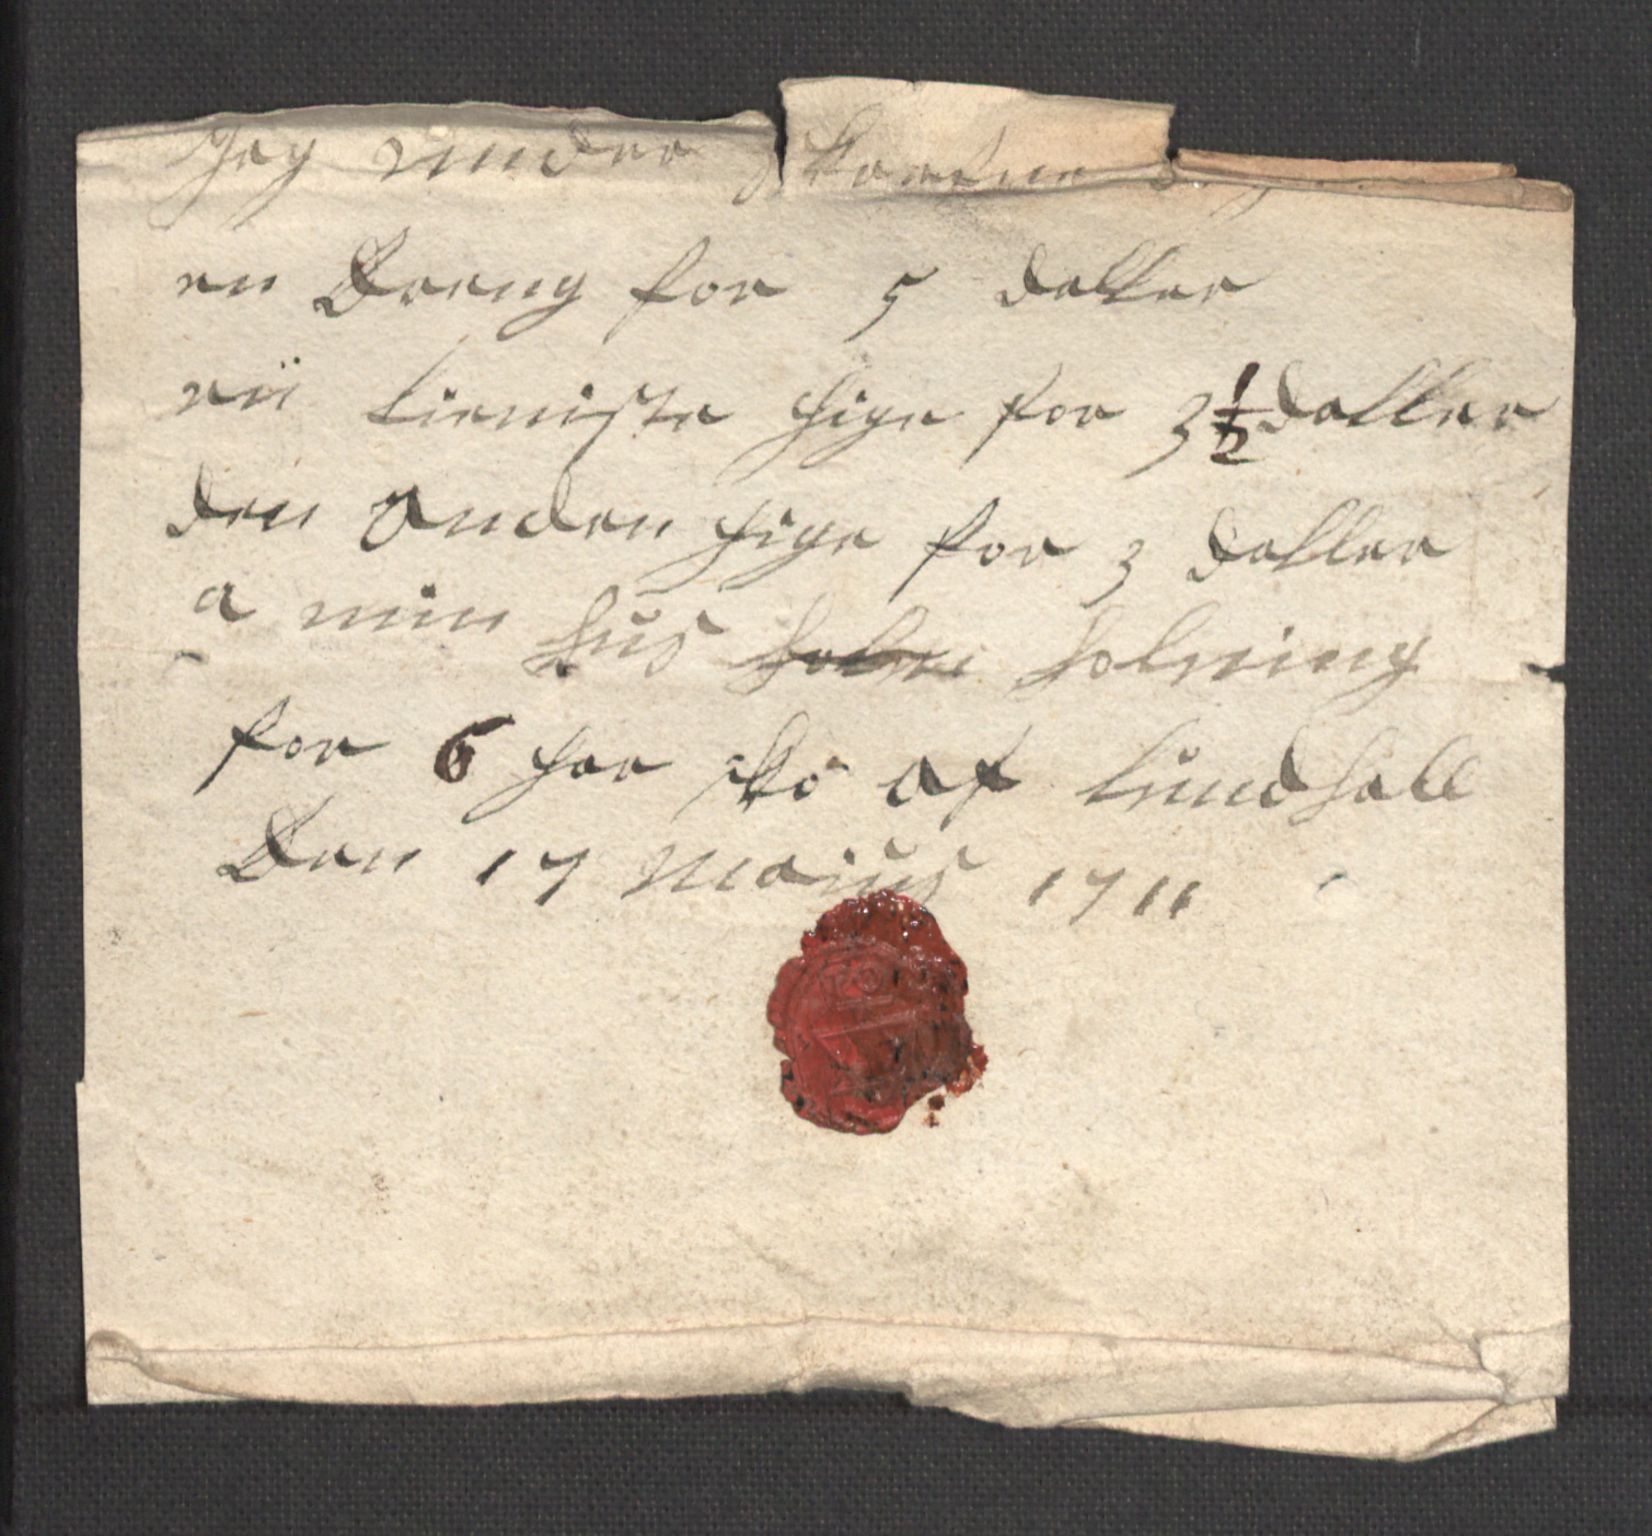 Jeg under Skrefne
en Dreng for 5 daller
en tieniste pige for 3 1/2 daller
den anden pige for 3 daller
a min hus holning
for 6 par sko af lundhall
Den 17 Maius 1711